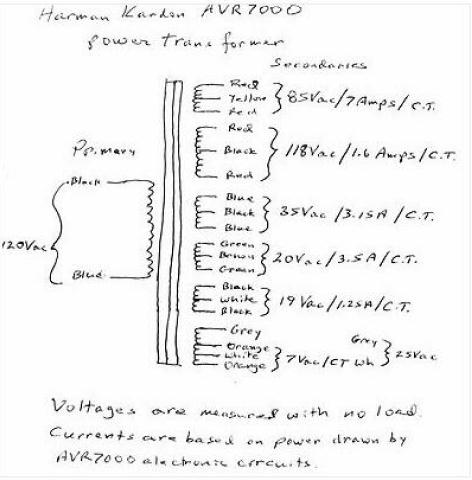 Harman Kardon AVR7000
power transformer
Secondaries
Red
Yellow
Red
85Vac/7Amps/C.T.
Red
Black
Red
118Vac/1.6 Amps/C.T.
Primary
Black
120Vac
Blue
Blue
Black
Blue
35Vac/3.15A/C.T.
Green
Brown
Green
20Vac/3.5A/C.T.
Black
White
Black
19Vac/1.25A/C.T.
Grey
Orange
White
Orange
7Vac/CT Wh
Grey
25Vac
Voltages are measured with no load.
Currents are based on power drawn by
AVR7000 electronic circuits.